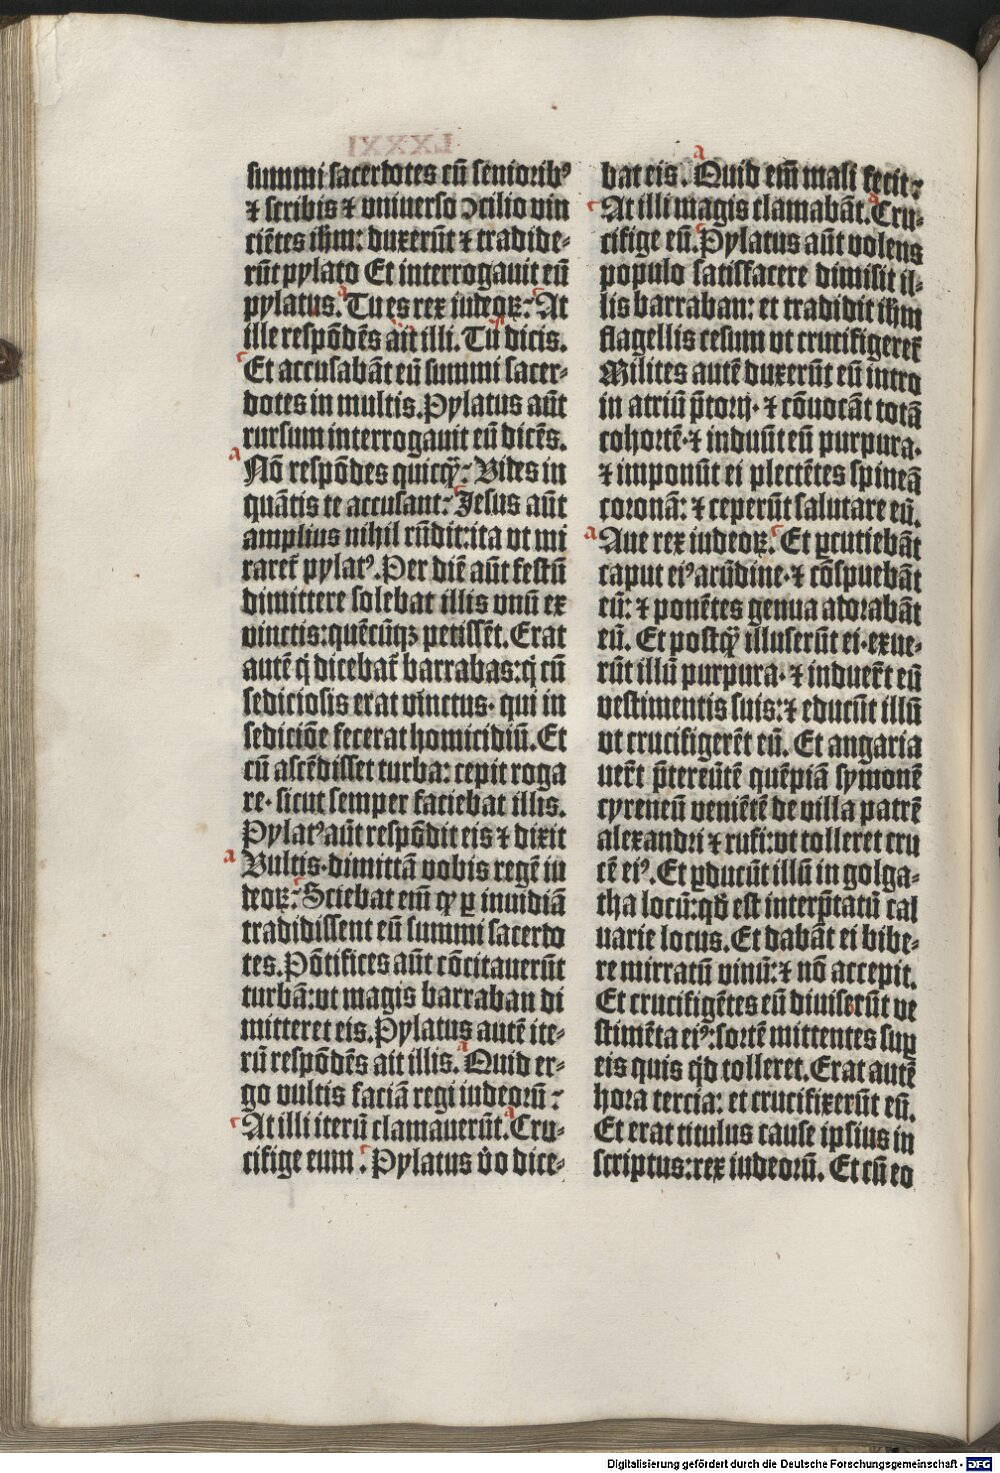 LXXXI
summi sacerdotes cū seniorib⁹
⁊ scribis ⁊ vniuerso ↄcilio vin
ciētes ihm: duxerūt ⁊ tradide-
rūt pylato Et interrogauit eū
pylatus. Tu es rex iudeoꝝ? At
ille respōdēs ait illi. Tu dicis.
Et accusabāt eū summi sacer-
dotes in multis. Pylatus aūt
rursum interrogauit eū dicēs.
a
Nō respōdes quicq̄? Vides in
quātis te accusant? Jesus aūt
amplius nihil rn̄dit: ita vt mi
raret᷑ pylat⁹. Per diē aūt festū
dimittere solebat illis vnū ex
vinctis: quēcūqꝫ petissēt. Erat
autē q̄ dicebat᷑ barrabas: q̄ cū
sediciosis erat vinctus· qui in
sediciōe fecerat homicidiū. Et
cū ascēdisset turba: cepit roga
re· sicut semper faciebat illis.
Pylat⁹ aūt respōdit eis ⁊ dixit
a
Vultis· dimittā vobis regē iu
deoꝝ? Sciebat em̄ ꝙ ꝑ inuidiā
tradidissent eū summi sacerdo
tes. Pōtifices aūt cōcitauerūt
turbā: vt magis barraban di
mitteret eis. Pylatus autē ite-
rū respōdēs ait illis. Quid er-
go vultis faciā regi iudeorū?
c At illi iterū clamauerūt. Cru-
cifige eum? Pylatus v̄o dice-
bat eis. Quid em̄ mali fecit?
c At illi magis clamabāt. Cru-
cifige eū. Pylatus aūt volens
populo satisfacere dimisit il-
lis barraban: et tradidit ihm
flagellis cesum vt crucifigeret᷑
Milites autē duxerūt eū intro
in atriū p̄torij· ⁊ cōuocāt totā
cohortē· ⁊ induūt eū purpura·
⁊ imponūt ei plectētes spineā
coronā: ⁊ ceperūt salutare eū.
a Aue rex iudeoꝝ. Et ꝑcutiebāt
caput ei⁹ arūdine· ⁊ cōspuebāt
eū: ⁊ ponētes genua adorabāt
eū. Et postq̄ illuserūt ei· exue-
rūt illū purpura· ⁊ induer̄t eū
vestimentis suis: ⁊ educūt illū
vt crucifigerēt eū. Et angaria
uer̄t p̄tereūtē quēpiā symonē
cyreneū veniētē de villa patrē
alexandri ⁊ rufi: vt tolleret cru
cē ei⁹. Et ꝑducūt illū in golga-
tha locū: qd̄ est interp̄tatū cal
uarie locus. Et dabāt ei bibe-
re mirratū vinū: ⁊ nō accepit.
Et crucifigētes eū diuiserūt ve
stimēta ei⁹: sortē mittentes suꝑ
eis quis qd̄ tolleret. Erat autē
hora tercia: et crucifixerūt eū.
Et erat titulus cause ipsius in
scriptus: rex iudeorū. Et cū eo
Digitalisierung gefördert durch die Deutsche Forschungsgemeinschaft - DFG